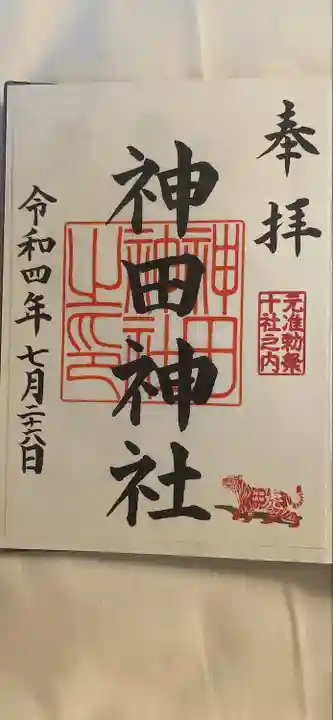 奉拝
元准勅祭
十社之内
神田神社
神田
神社
之印
令和四年七月二十六日